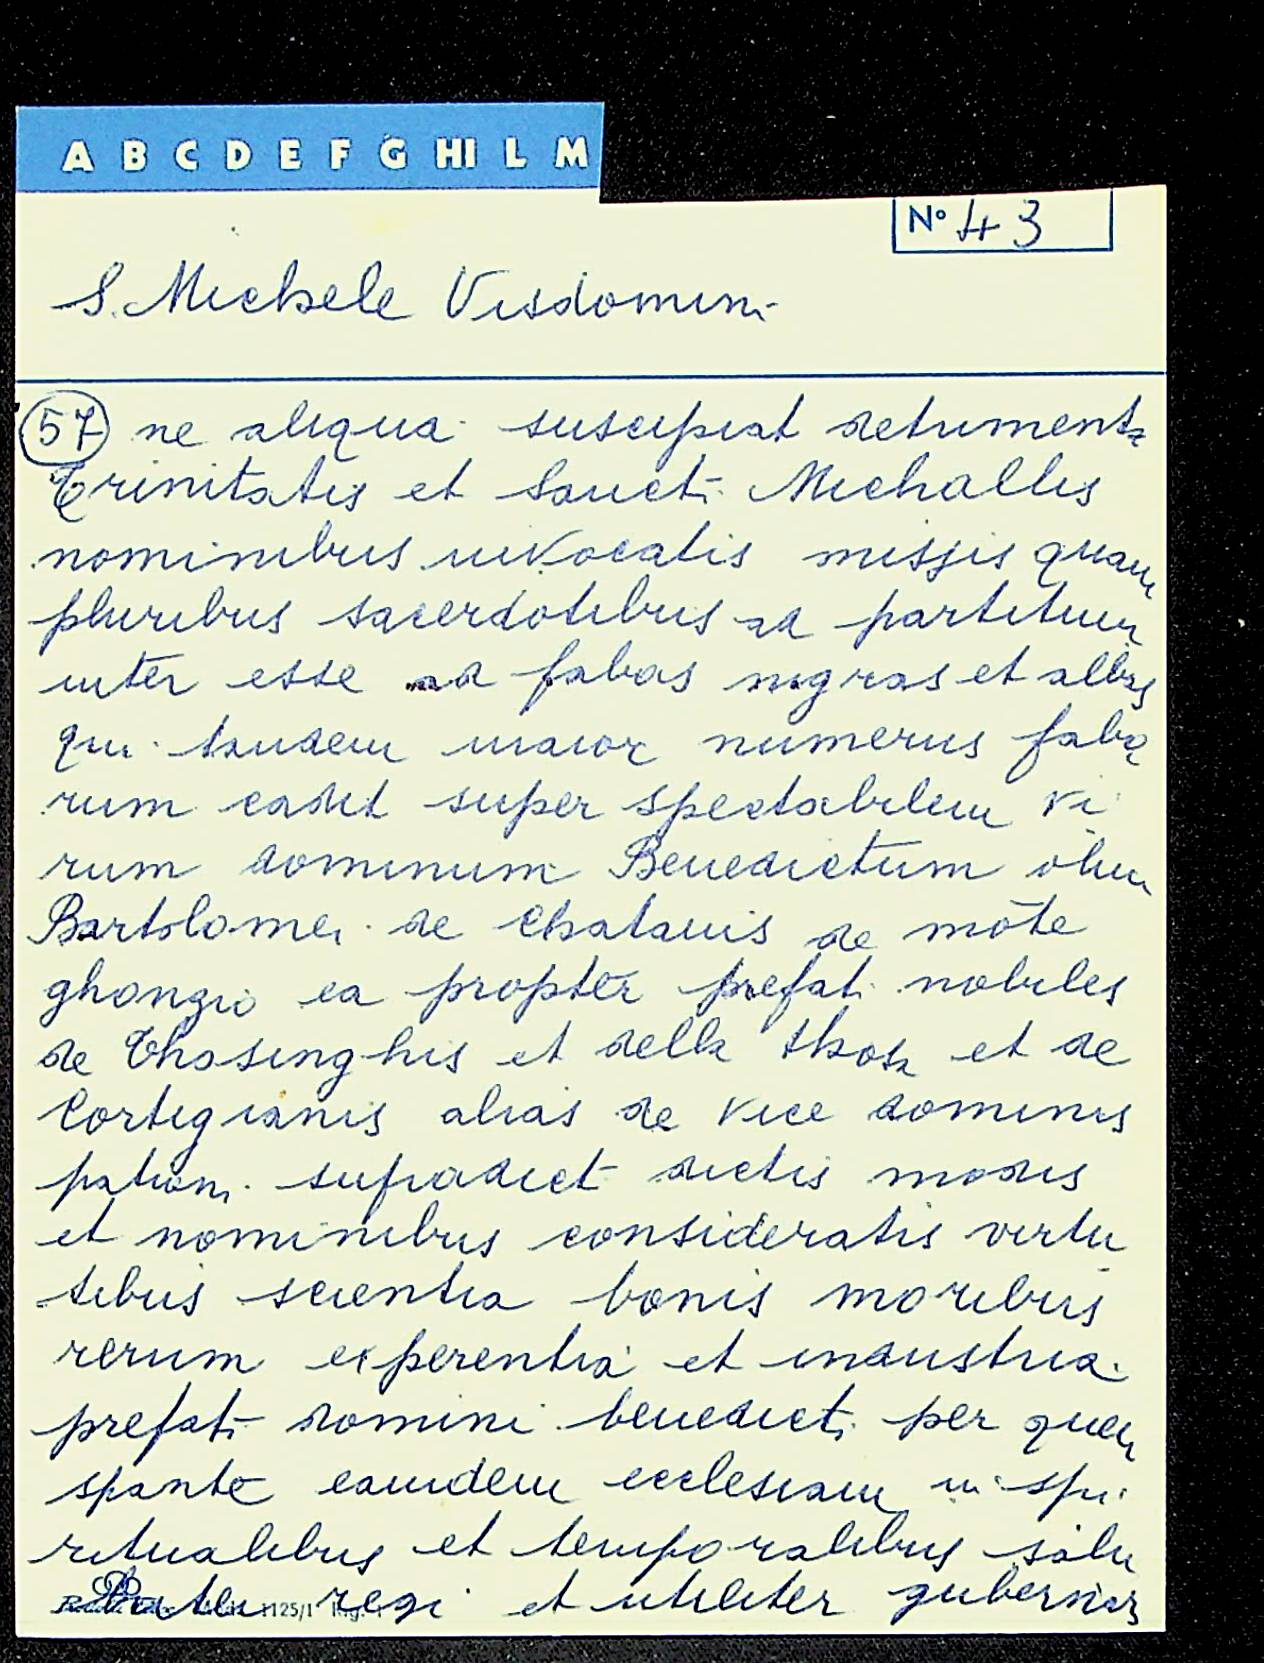 A B C D E F G HI L M
N° 43
S. Michele Visdomini
57 ne aliqua suscipiat detrimenta
Trinitatis et Sancti Michallis
nominibus invocatis missis quam
pluribus sacerdotibus ad partitum
inter esse ad fabas nigras et albas
qui tandem maior numerus faba
rum cadit super spectabilem vi
rum dominum Benedictum olim
Bartolomei de Chatanis de mōte
ghonzio ea propter prefati nobiles
de Thosinghis et della thosa et de
Cortigianis alias de vice dominis
patroni supradict dictis modis
et nominibus consideratis virtu
tibus scientia bonis moribus
rerum experentia et industria
prefati domini benedicti per quem
spante eamdem ecclesiam in spi
ritualibus et temporalibus salu
regi et utiliter gubernar
1125/1